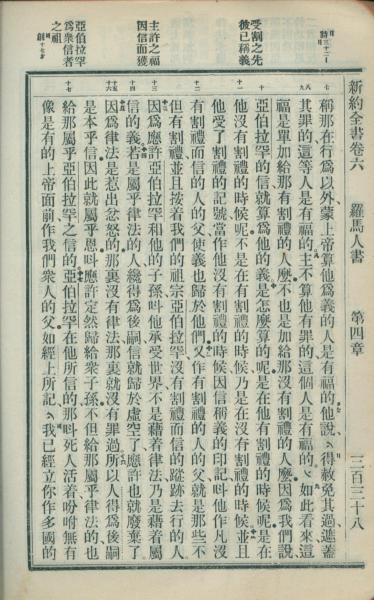 新約全書卷六　羅馬人書　第四章　三百三十八
稱那在行爲以外蒙上帝算他爲義的人是有福的他說得赦免其過遮蓋
其罪的這等人是有福的主不算他有罪的這個人是有福的如此看來這
福是單加給那有割禮的人麽不也是加給那沒有割禮的人麽因爲我們說
亞伯拉罕的信就算爲他的義是怎麽算的呢是在他有割禮的時候呢是在
他沒有割禮的時候呢不是在有割禮的時候乃是在沒有割禮的時候並且
他受了割禮的記號當作他沒有割禮的時候因信稱義的印記叫他作凡沒
有割禮而信的人的父使義也歸於他們又作有割禮的人的父就是那些不
但有割禮並且按着我們的祖宗亞伯拉罕沒有割禮而信的蹤跡去行的人
因爲應許亞伯拉罕和他的子孫叫他承受世界不是藉着律法乃是藉着屬
信的義若是屬乎律法的人纔得爲後嗣信就歸於虛空了應許也就廢棄了
因爲律法是惹出忿怒的那裏沒有律法那裏就沒有罪過所以人得爲後嗣
是本乎信因此就屬乎恩叫應許定然歸給衆子孫不但給那屬乎律法的也
給那屬乎亞伯拉罕之信的亞伯拉罕在他所信的那叫死人活着吩咐無有
像是有的上帝面前作我們衆人的父如經上所記我已經立你作多國的
受割之先
後已稱義
主許之福
因信而獲
亞伯拉罕
爲衆信者
之祖